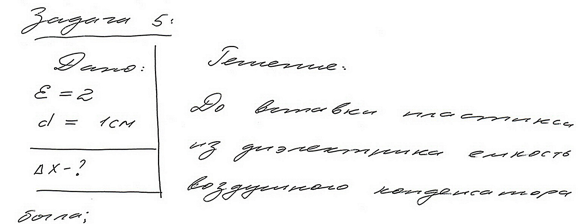 Задача 5:
Дано:
ε = 2
d = 1см
Δx - ?
Решение:
До вставки пластинки
из диэлектрика емкость
воздушного конденсатора
была;